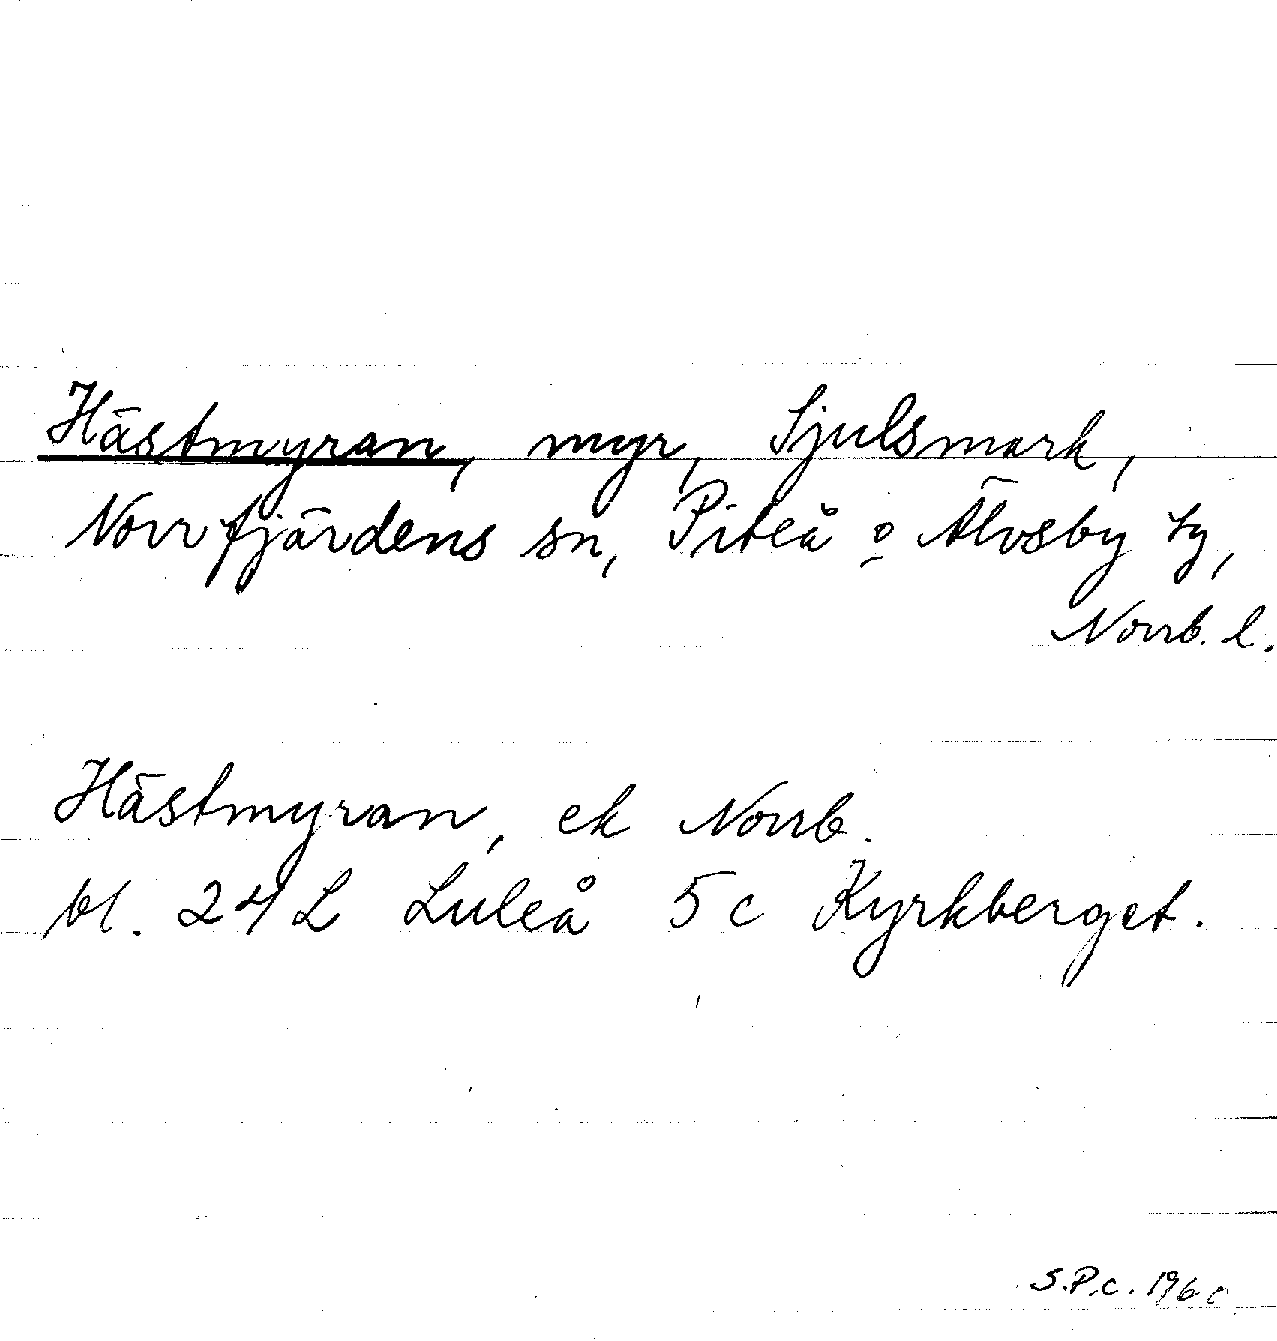 Hästmyran, myr, Sjulsmark,
Norrfjärdens sn, Piteå o Älvsby tg,
Norrb. l.
Hästmyran, ek Norrb.
bl. 24 L Luleå 5 c Kyrkberget.
S.P.C. 196